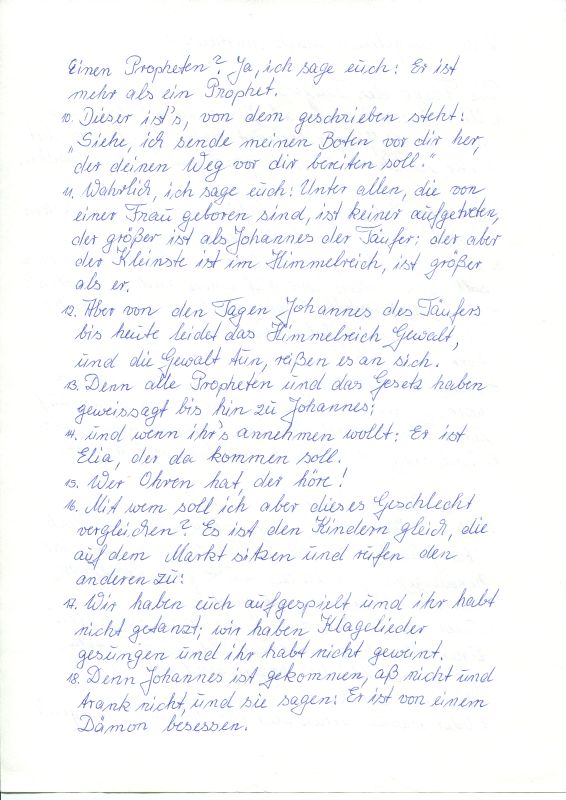 Einen Propheten? Ja, ich sage euch: Er ist
mehr als ein Prophet.
10. Dieser ist's, von dem geschrieben steht:
„Siehe, ich sende meinen Boten vor dir her,
der deinen Weg vor dir bereiten soll."
11. Wahrlich, ich sage euch: Unter allen, die von
einer Frau geboren sind, ist keiner aufgetreten,
der größer ist als Johannes der Täufer; der aber
der Kleinste ist im Himmelreich, ist größer
als er.
12. Aber von den Tagen Johannes des Täufers
bis heute leidet das Himmelreich Gewalt,
und die Gewalt tun, reißen es an sich.
13. Denn alle Propheten und das Gesetz haben
geweissagt bis hin zu Johannes;
14. und wenn ihr's annehmen wollt: Er ist
Elia, der da kommen soll.
15. Wer Ohren hat, der höre!
16. Mit wem soll ich aber dieses Geschlecht
vergleichen? Es ist den Kindern gleich, die
auf dem Markt sitzen und rufen den
anderen zu:
17. Wir haben euch aufgespielt und ihr habt
nicht getanzt; wir haben Klagelieder
gesungen und ihr habt nicht geweint.
18. Denn Johannes ist gekommen, aß nicht und
trank nicht, und sie sagen: Er ist von einem
Dämon besessen.